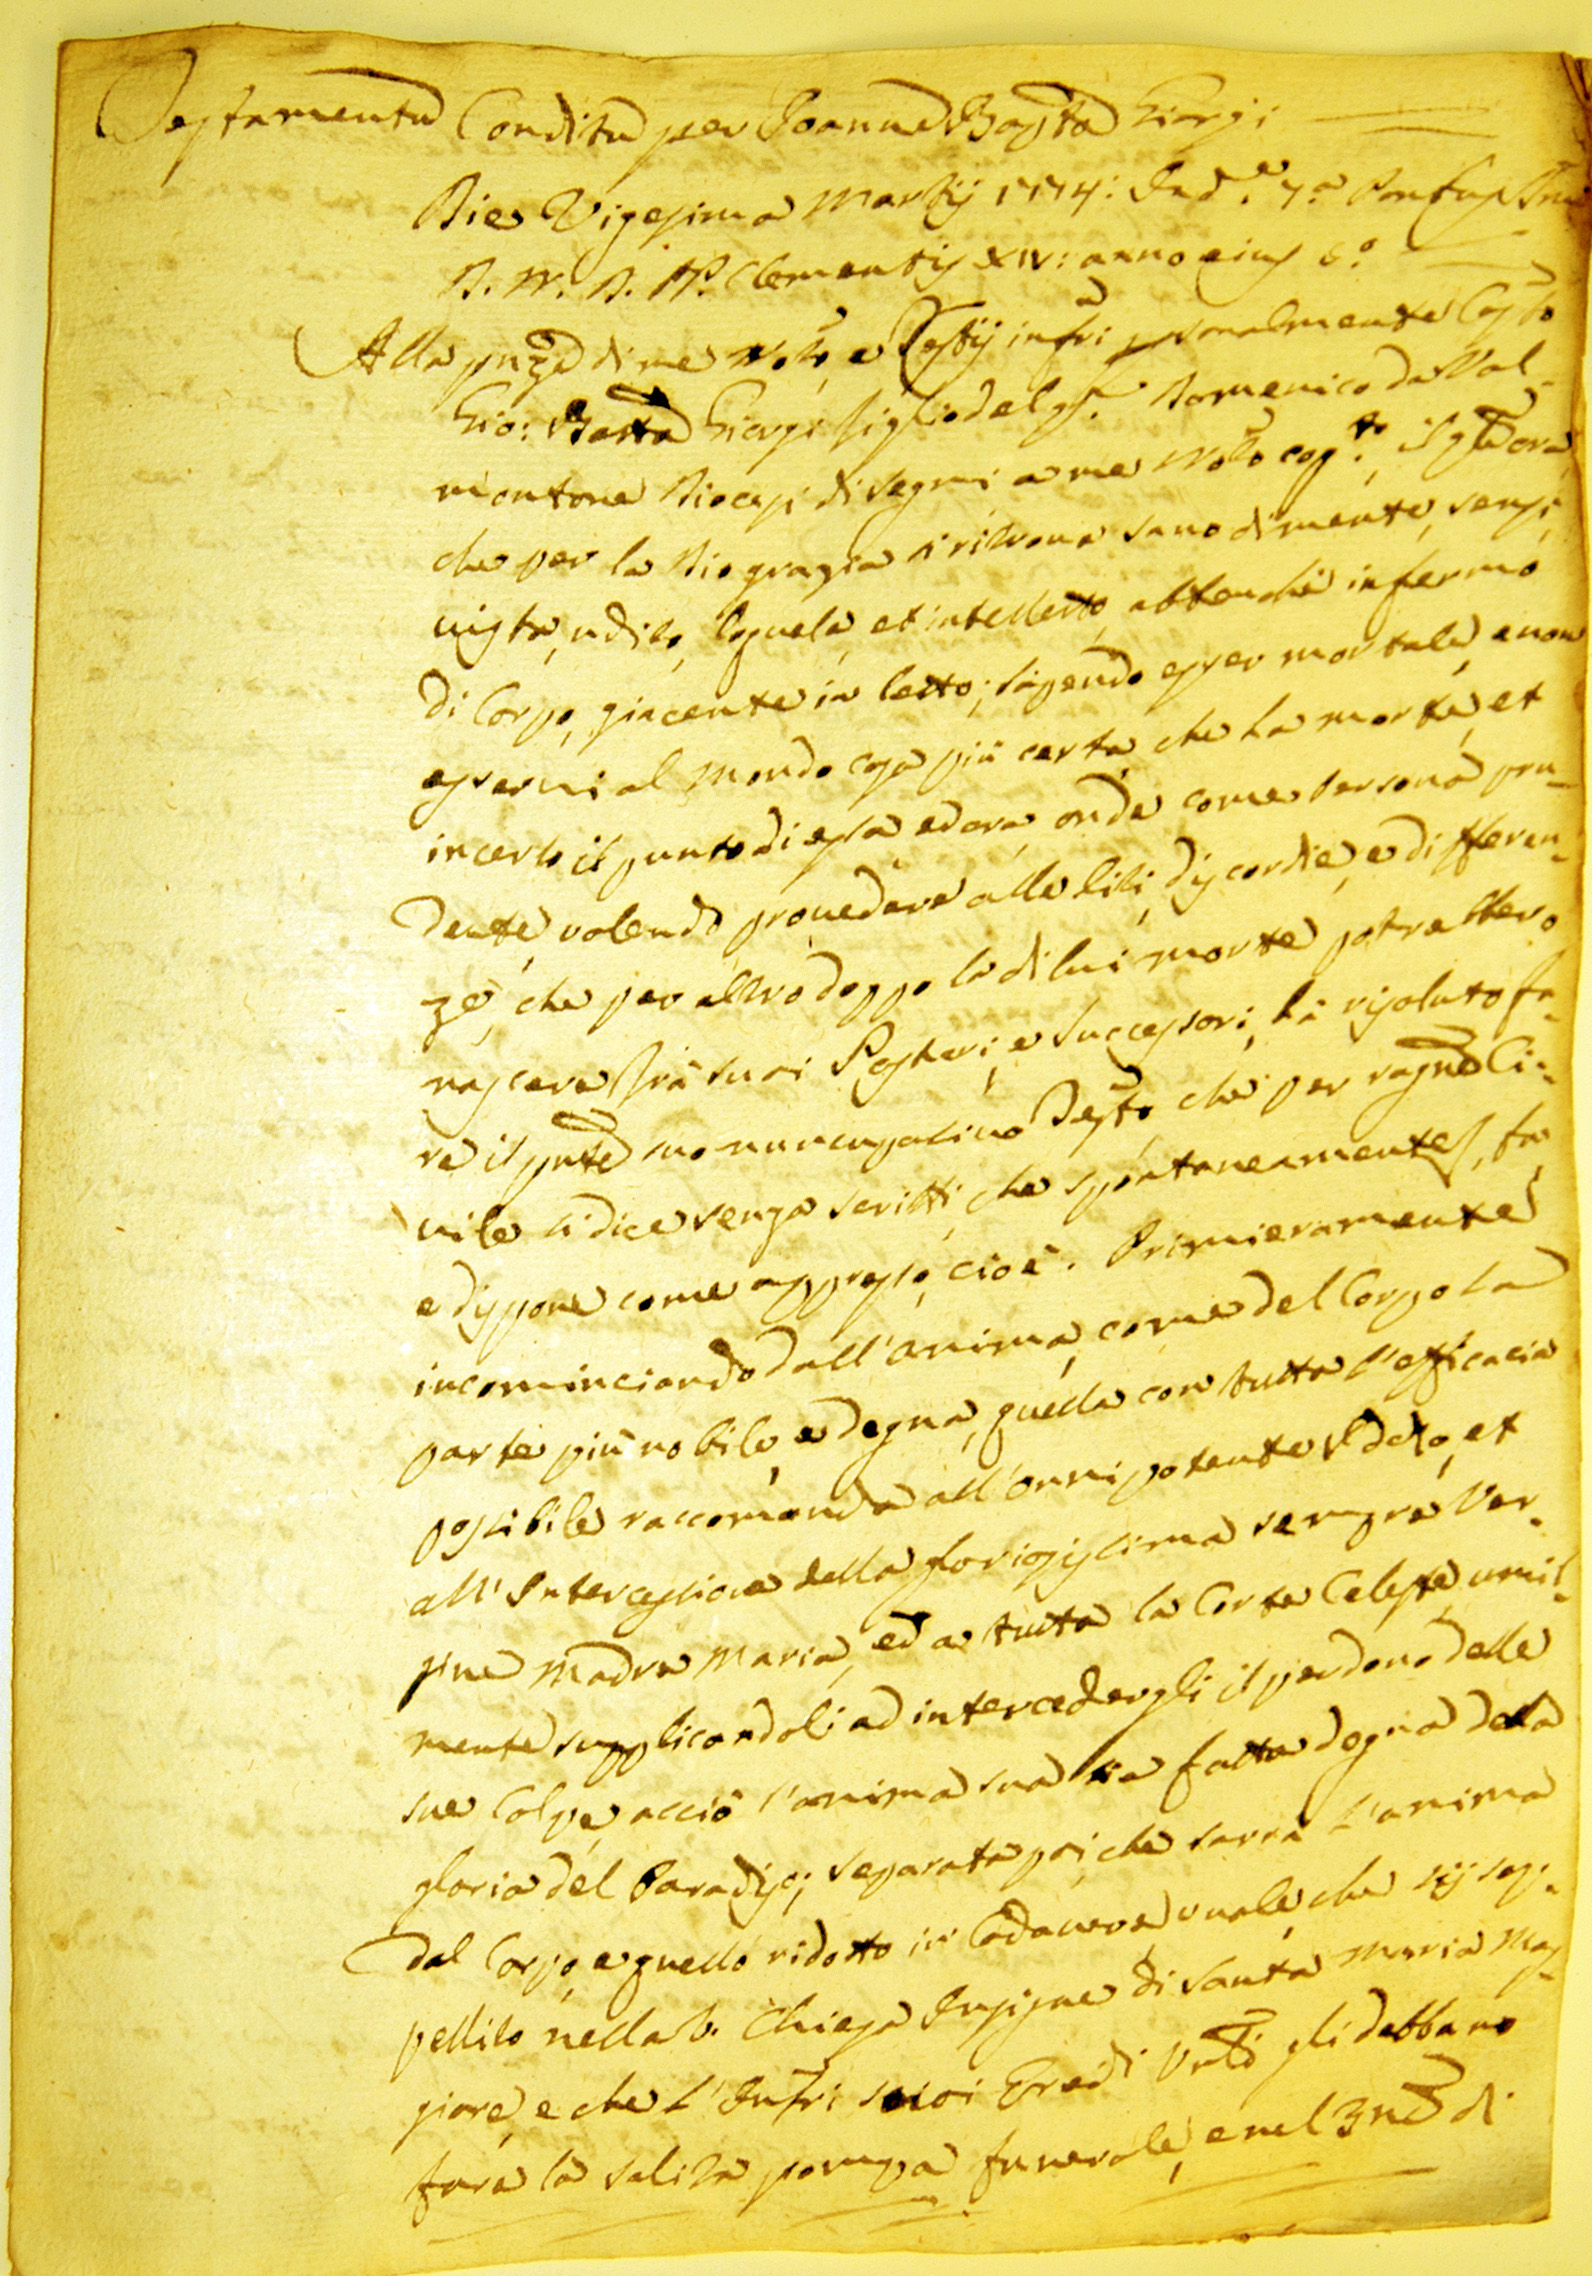 Testamentu Conditu per Joanne Bapta Giorgi
Die Vigesima Martij 1774: Ind.e 7.a Pontus Smi
D. N. D. PP. Clementis XIV: anno eius 5.o
Alla pnza di me Nots e Testij infri psonalmente Costo
Gio: Batta Giorgi figlio del qm. Domenico da Val-
montone Diocesi di Segni a me Noto cog.to, il qle ora
che per la Dio grazia si ritrova sano di mente, sensi,
vista, udito, loquela, et intelletto, abbenchè infermo
di Corpo, giacente in letto; sapendo esser mortale, e non
esservi al Mondo cosa più certa, che la morte, et
incerto il punto di essa ed ora, onde come Persona pru-
dente, volendo provedere alle liti, discordie, e differen-
ze, che per altro doppo la di lui morte potrebbero
nascere frà suoi Posteri, e Successori, hà risoluto fa-
re il pnte suo nuncupativo Testo che per ragne Ci-
vile si dice senza scritti, che spontaneamente, fa,
e dispone come appresso, cioè. Primieramente
incominciando dall'anima, come del Corpo la
parte più nobile, e degna, quella con tutta l'efficacia
possibile raccomanda all'Onnipotente Iddio, et
all'Intercessione della gloriosissima sempre Ver-
gine Madre Maria, ed a tutta la Corte Celeste, umil-
mente supplicandoli ad intercedergli il perdono delle
sue Colpe, acciò l'anima sua sia fatta degna della
gloria del Paradiso; separata poi, che sarrà l'anima
dal Corpo, e quello ridotto in Cadavere, vuole, che sij sep-
pellito nella V. Chiesa Insigne di Santa Maria Mag-
giore, e che l'Infri suoi Eredi Vnli gli debbano
fare la solita pompa funerale, e nel 3no di